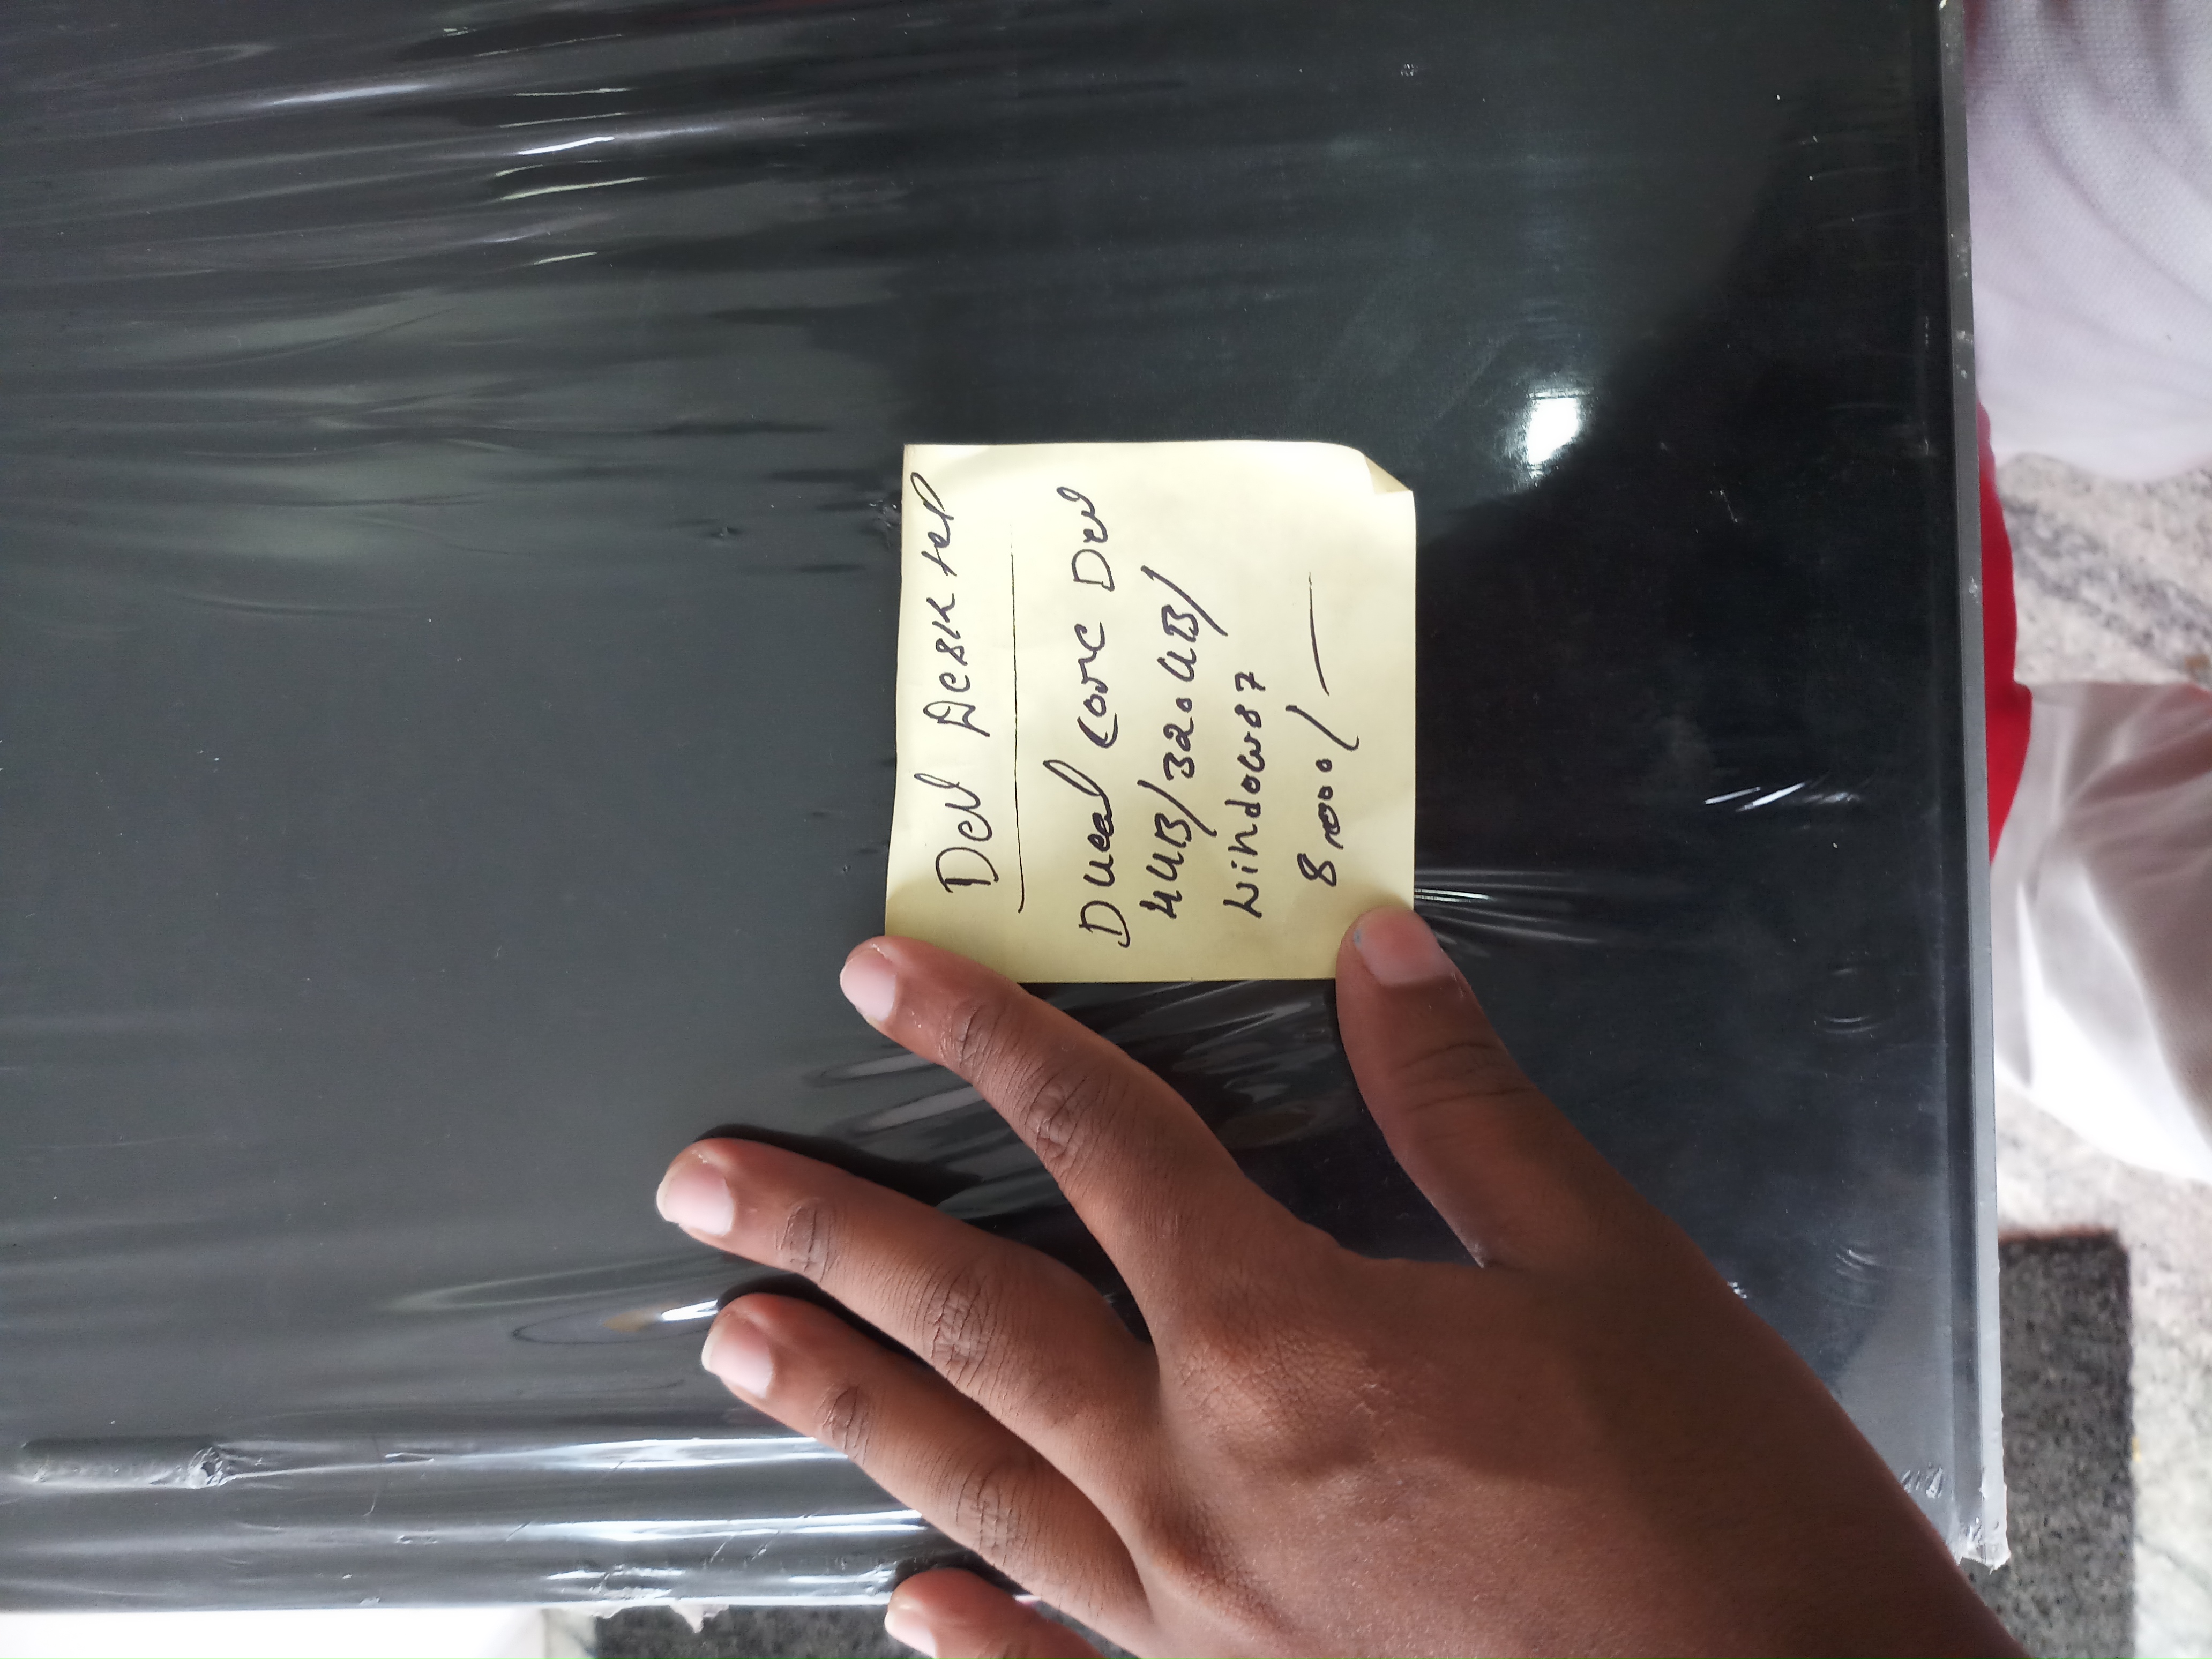 Dell Desktop
Dueal core Dell
4GB/320GB/
Windows7
8,000/-